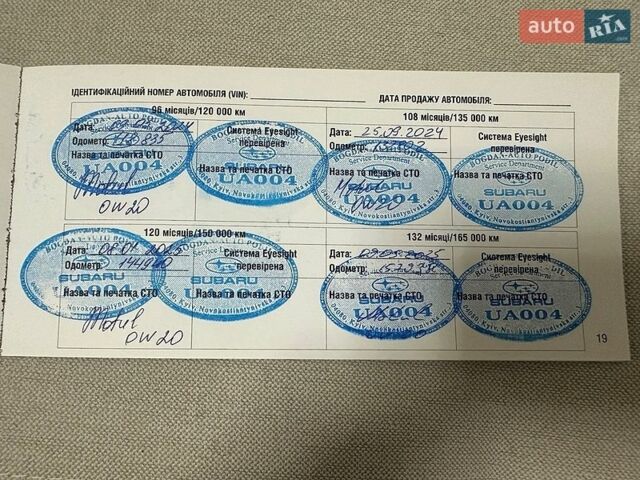 auto RIA.com
ІДЕНТИФІКАЦІЙНИЙ НОМЕР АВТОМОБІЛЯ (VIN): ДАТА ПРОДАЖУ АВТОМОБІЛЯ:
96 місяців/120 000 км
Дата:
Одометр:
Назва та печатка СТО
Motul
0W20
Система Eyesight
перевірена
Назва та печатка СТО
BOGDAN-AUTO PODIL
Service Department
SUBARU
UA004
04080, Kyiv, Novokostiantynivska str.
108 місяців/135 000 км
Дата: 25.09.2024
Одометр:
Назва та печатка СТО
Motul
0W20
Система Eyesight
перевірена
Назва та печатка СТО
SUBARU
UA004
120 місяців/150 000 км
Дата:
Одометр:
Назва та печатка СТО
Motul
0W20
Система Eyesight
перевірена
Назва та печатка СТО
SUBARU
UA004
132 місяці/165 000 км
Дата:
Одометр:
Назва та печатка СТО
UA004
Система Eyesight
перевірена
Назва та печатка СТО
SUBARU
UA004
19